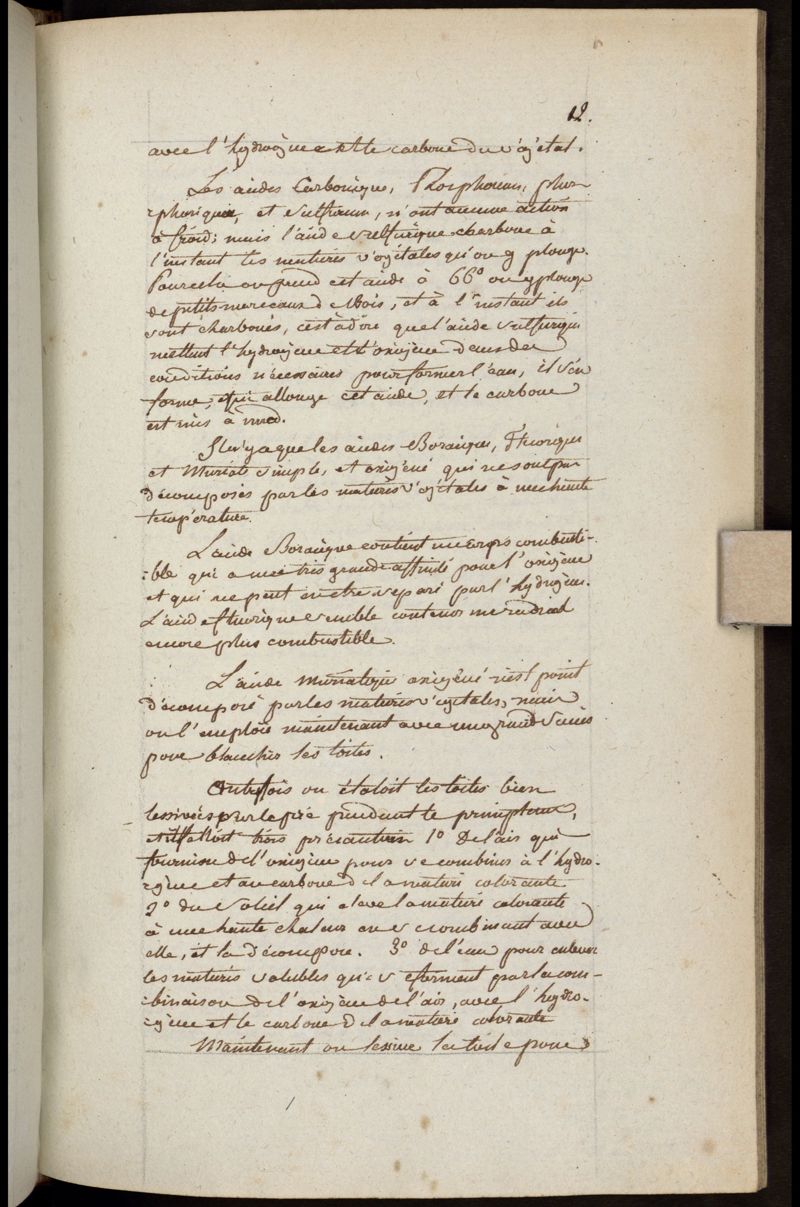 12.
avec l'hydrogène et le carbone du végétal.
Les acides Carbonique, Phosphoreux, phos-
-phorique, et sulfureux, n'ont aucune action
à froid; mais l'acide sulfurique charbone à
l'instant les matieres végétales qu'on y plonge.
Pour cela on prend cet acide à 66° on y plonge
de petits morceaux de Bois, et à l'instant ils
sont charbonés, c'est à dire que l'acide sulfurique
mettant l'hydrogène et l'oxigène dans des
conditions nécessaires pour former l'eau, il s'en
forme, qui allonge cet acide, et le carbone
est mis à nud.
Il n'y a que les acides Boracique, fluorique
et Muriate simple, et oxigéné qui ne sont pas
décomposés par les matieres végétales à une haute
température.
L'acide Boracique contient un corps combusti-
-ble qui a une très grande affinité pour l'oxigène
et qui ne peut en etre séparé par l'hydrogène.
L'acide fluorique semble contenir un radical
encore plus combustible.
L'acide muriatique oxigéné n'est point
décomposé par les matieres végétales, mais
on l'emploie maintenant avec un grand succès
pour blanchir les toiles.
Autrefois on étaloit les toiles bien
lessivées sur le pré pendant le printemps,
et il falloit trois précautions 1° De l'air qui
fournisse de l'oxigène pour se combiner à l'hydro-
-gène et au carbone de la matiere colorante
2° du Soleil qui eleve la matiere colorante
à une haute chaleur en se combinant avec
elle, et la décompose. 3° de l'eau pour enlever
les matieres solubles qui se forment par la com-
-binaison de l'oxigène de l'air, avec l'hydro-
-gène et le carbone de la matiere colorante
Maintenant on lessive la toile pour